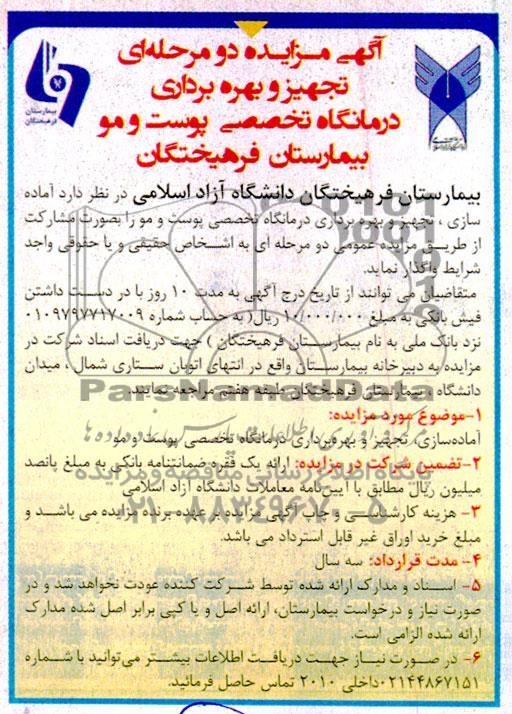 آگهی مـزایـده دو مرحله‌ای
تجهیز و بهره برداری
درمانگاه تخصصی پوست و مو
بیمارستان فرهیختگان
بیمارستان
فرهیختگان
بیمارستان فرهیختگان دانشگاه آزاد اسلامی در نظر دارد آماده
سازی ، تجهیز و بهره برداری درمانگاه تخصصی پوست و مو را بصورت مشارکت
از طریق مزایده عمومی دو مرحله ای به اشخاص حقیقی و یا حقوقی واجد
شرایط واگذار نماید.
متقاضیان می توانند از تاریخ درج آگهی به مدت ۱۰ روز با در دست داشتن
فیش بانکی به مبلغ ۱۰/۰۰۰/۰۰۰ ریال( به حساب شماره ۰۱۰۹۷۹۷۷۱۷۰۰۹
نزد بانک ملی به نام بیمارستان فرهیختگان ) جهت دریافت اسناد شرکت در
مزایده به دبیرخانه بیمارستان واقع در انتهای اتوبان ستاری شمال ، میدان
دانشگاه ، بیمارستان فرهیختگان طبقه هفتم مراجعه نمایند.
ParsNamadData
۱-موضوع مورد مزایده:
آماده‌سازی، تجهیز و بهره‌برداری درمانگاه تخصصی پوست و مو
۲-تضمین شرکت در مزایده: ارائه یک فقره ضمانتنامه بانکی به مبلغ پانصد
میلیون ریال مطابق با آیین‌نامه معاملات دانشگاه آزاد اسلامی
۰۲۱-۸۸۳۴۹۶۷۰-۵
۳- هزینه کارشناسی و چاپ آگهی مزایده بر عهده برنده مزایده می باشد و
مبلغ خرید اوراق غیر قابل استرداد می باشد.
۴- مدت قرارداد: سه سال
۵- اسناد و مدارک ارائه شده توسط شرکت کننده عودت نخواهد شد و در
صورت نیاز و درخواست بیمارستان، ارائه اصل و یا کپی برابر اصل شده مدارک
ارائه شده الزامی است.
۶- در صورت نیاز جهت دریافت اطلاعات بیشتر می‌توانید با شماره
۰۲۱۴۴۸۶۷۱۵۱داخلی ۲۰۱۰ تماس حاصل فرمائید.